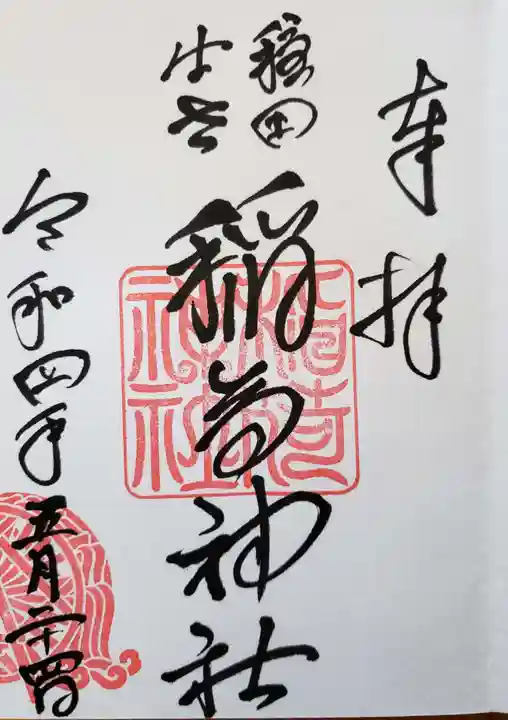 奉拝
稲荷神社
稲荷
神社
令和四年五月二十四日